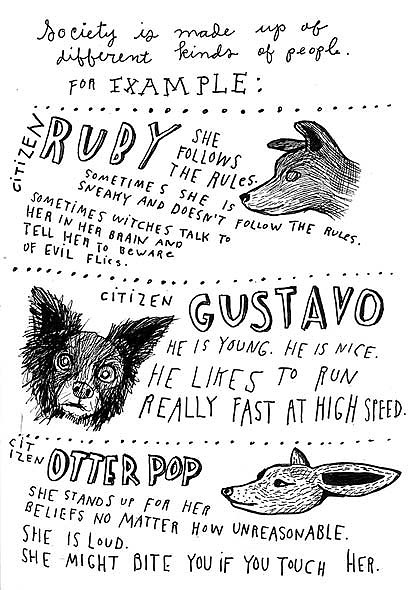 Society is made up of
different kinds of people.
FOR EXAMPLE:
CITIZEN RUBY
SHE
FOLLOWS
THE RULES.
SOMETIMES SHE IS
SNEAKY AND DOESN'T FOLLOW THE RULES.
SOMETIMES WITCHES TALK TO
HER IN HER BRAIN AND
TELL HER TO BEWARE
OF EVIL FLIES.
CITIZEN GUSTAVO
HE IS YOUNG. HE IS NICE.
HE LIKES TO RUN
REALLY FAST AT HIGH SPEED.
CIT
IZEN OTTER POP
SHE STANDS UP FOR HER
BELIEFS NO MATTER HOW UNREASONABLE.
SHE IS LOUD.
SHE MIGHT BITE YOU IF YOU TOUCH HER.